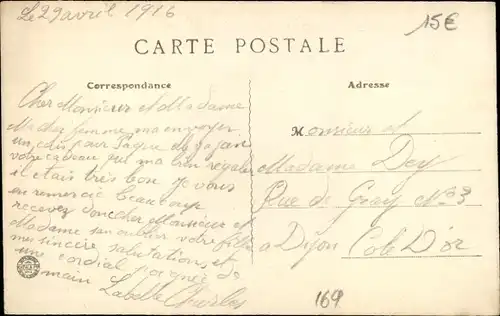 Le 29 avril 1916
15€
CARTE POSTALE
Correspondance
Adresse
Cher Monsieur et Madame
Ma cher femme ma envoyer
un colis pour Paque de façon
votre cadeau qui ma bien régaler
il etais très bon je vous
en remercie beaucoup
recevez donc cher Monsieur et
Madame san oublier votre fille
mes sincère salutations et
une cordial poignée de
main Labelle Charles
Monsieur et
Madame Dey
Rue de Gray N° 33
a Dijon
Cote D'or
169